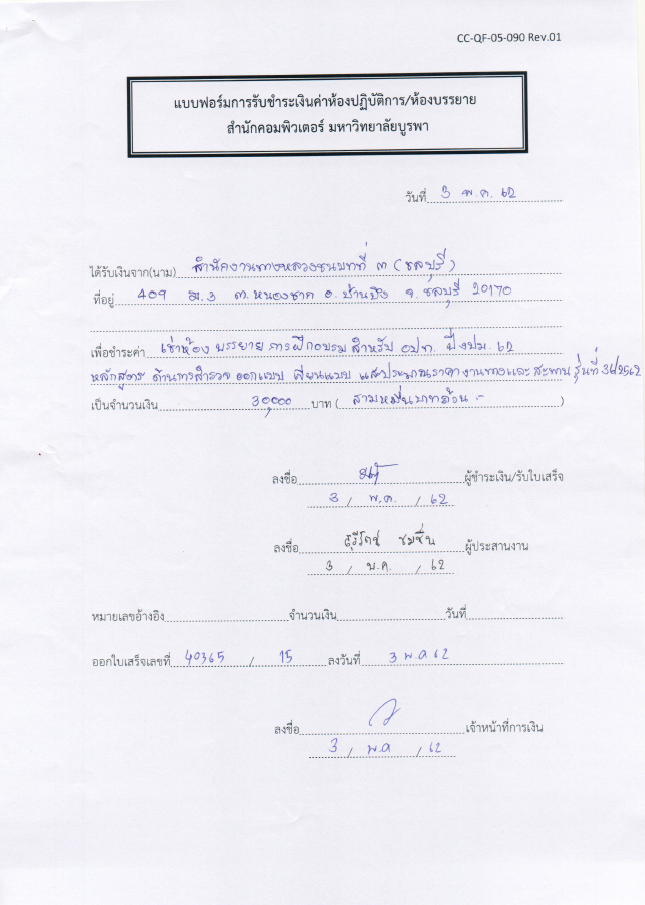 CC-QF-05-090 Rev.01
แบบฟอร์มการรับชำระเงินค่าห้องปฏิบัติการ/ห้องบรรยาย
สำนักคอมพิวเตอร์ มหาวิทยาลัยบูรพา
วันที่ 3 พ.ค. 62
ได้รับเงินจาก(นาม) สำนักงานทางหลวงชนบทที่ ๓ (ชลบุรี)
ที่อยู่ 409 ม.3 ต.หนองชาก อ.บ้านบึง จ.ชลบุรี 20170
เพื่อชำระค่า เช่าห้อง บรรยาย การฝึกอบรม สำหรับ อปท. ปีงปม. 62
หลักสูตร ด้านการสำรวจ ออกแบบ เขียนแบบ และประมาณราคางานทางและสะพาน รุ่นที่ 3/2562
เป็นจำนวนเงิน 30,000 บาท ( สามหมื่นบาทถ้วน .- )
ลงชื่อ ผู้ชำระเงิน/รับใบเสร็จ
3 / พ.ค. / 62
ลงชื่อ ชมชื่น ผู้ประสานงาน
3 / พ.ค. / 62
หมายเลขอ้างอิง จำนวนเงิน วันที่
ออกใบเสร็จเลขที่ 40365 / 15 ลงวันที่ 3 พ.ค 62
ลงชื่อ เจ้าหน้าที่การเงิน
3 / พ.ค / 62